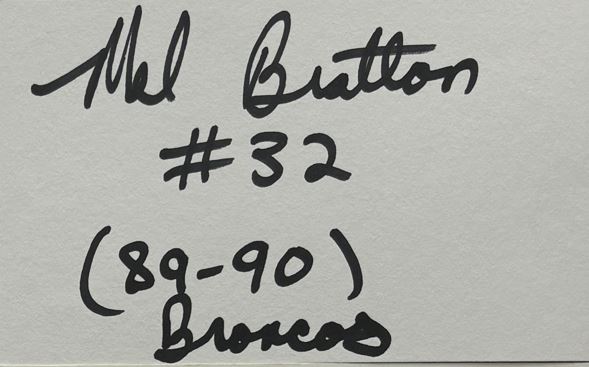 Mel Bratton
#32
(89-90)
Broncos